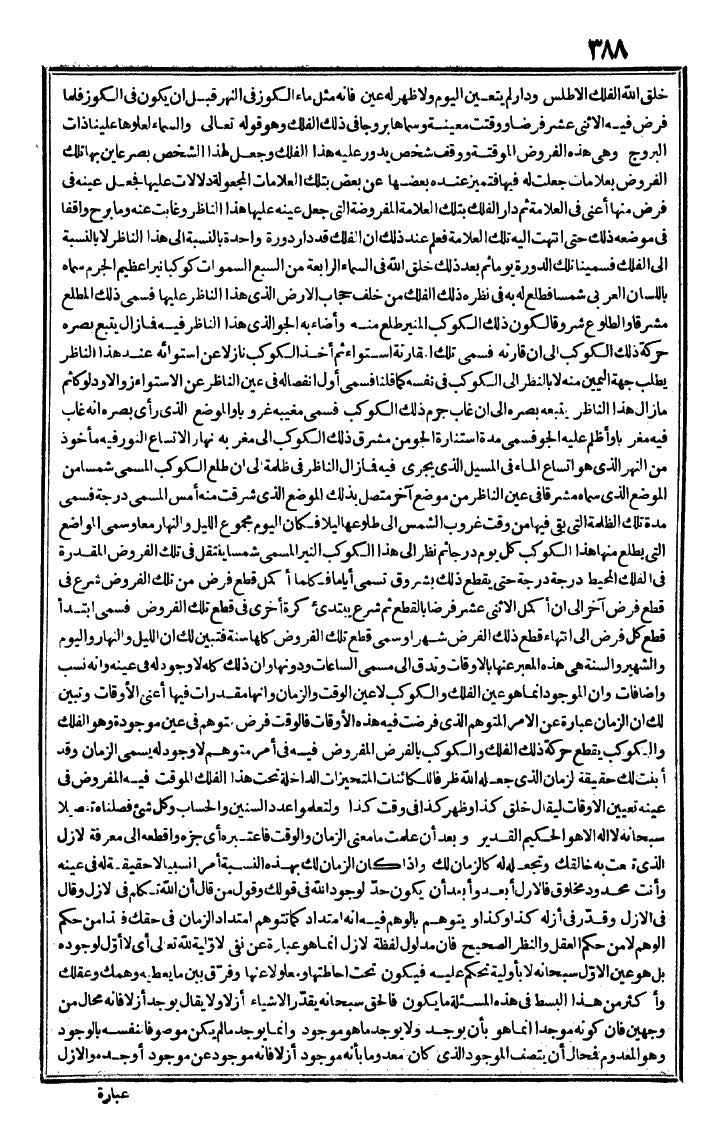 ٣٨٨
خلق الله الفلك الاطلس ودار لم يتعين اليوم ولا ظهر له عين فانه مثل ماء الكوز فى النهر قبل ان يكون فى الكوز فلما
فرض فيه الاثنى عشر فرضا ووقتت معينة وسماها بروجا فى ذلك الفلك وهو قوله تعالى والسماء لعلوها علينا ذات
البروج وهى هذه الفروض الموقتة ووقف شخص يدور عليه هذا الفلك وجعل لهذا الشخص بصر عاين بها تلك
الفروض بعلامات جعلت له فيها فتميز عنده بعضها عن بعض بتلك العلامات المجعولة دلالات عليها فجعل عينه فى
فرض منها أعنى فى العلامة ثم دار الفلك بتلك العلامة المفروضة التى جعل عينه عليها هذا الناظر وغابت عنه وما برح واقفا
فى موضعه ذلك حتى انتهت اليه تلك العلامة فعلم عند ذلك ان الفلك قد دار دورة واحدة بالنسبة الى هذا الناظر لا بالنسبة
الى الفلك فسمينا تلك الدورة يوما ثم بعد ذلك خلق الله فى السماء الرابعة من السبع السموات كوكبا نيرا عظيم الجرم سماه
باللسان العربى شمسا فطلع له به فى نظره ذلك الفلك من خلف حجاب الارض الذى هذا الناظر عليها فسمى ذلك المطلع
مشرقا والطلوع شروقا لكون ذلك الكوكب المنير طلع منه وأضاء به الجو الذى هذا الناظر فيه فما زال يتبع بصره
حركة ذلك الكوكب الى ان قارنه فسمى تلك المقارنة استواء ثم أخذ الكوكب نازلا عن استوائه عند هذا الناظر
يطلب جهة اليمين منه لا بالنظر الى الكوكب فى نفسه كما قلنا فسمى أول انفصاله فى عين الناظر عن الاستواء زوالا ودلوكا ثم
مازال هذا الناظر يتبعه بصره الى ان غاب جرم ذلك الكوكب فسمى مغيبه غروبا والموضع الذى رأى بصره انه غاب
فيه مغربا وأظلم عليه الجو فسمى مدة استنارة الجو من مشرق ذلك الكوكب الى مغربه نهارا لاتساع النور فيه مأخوذ
من النهر الذى هو اتساع الماء فى المسيل الذى يجرى فيه فما زال الناظر فى ظلمة الى ان طلع الكوكب المسمى شمسا من
الموضع الذى سماه مشرقا فى عين الناظر من موضع آخر متصل بذلك الموضع الذى شرقت منه أمس المسمى درجة فسمى
مدة تلك الظلمة التى بقى فيها من وقت غروب الشمس الى طلوعها ليلا فكان اليوم مجموع الليل والنهار معا وسمى المواضع
التى يطلع منها هذا الكوكب كل يوم درجا ثم نظر الى هذا الكوكب النير المسمى شمسا ينتقل فى تلك الفروض المقدرة
فى الفلك المحيط درجة درجة حتى يقطع ذلك بشروق تسمى أياما فكلما أكمل قطع فرض من تلك الفروض شرع فى
قطع فرض آخر الى ان أكمل الاثنى عشر فرضا بالقطع ثم شرع يبتدئ كرة أخرى فى قطع تلك الفروض فسمى ابتدأ
قطع كل فرض الى انتهاء قطع ذلك الفرض شهرا وسمى قطع تلك الفروض كلها سنة فتبين لك ان الليل والنهار واليوم
والشهر والسنة هى هذه المعبر عنها بالاوقات وتدق الى مسمى الساعات ودونها وان ذلك كله لا وجود له فى عينه وانه نسب
واضافات وان الموجود انما هو عين الفلك والكوكب لا عين الوقت والزمان وانها مقدرات فيها أعنى الأوقات وتبين
لك ان الزمان عبارة عن الامر المتوهم الذى فرضت فيه هذه الأوقات فالوقت فرض متوهم فى عين موجودة وهو الفلك
والكوكب يقطع حركة ذلك الفلك والكوكب بالفرض المفروض فيه فى أمر متوهم لا وجود له يسمى الزمان وقد
أبنت لك حقيقة لزمان الذى جعله الله ظرفا للكائنات المتحيزات الداخلة تحت هذا الفلك الموقت فيه المفروض فى
عينه تعيين الاوقات ليقال خلق كذا وظهر كذا فى وقت كذا ولتعلموا عدد السنين والحساب وكل شئ فصلناه تفصيلا
سبحانه لا اله الا هو الحكيم القدير وبعد أن علمت ما معنى الزمان والوقت فاعتبره أى جزه واقطعه الى معرفة لازل
الذى تنعت به خالقك وتجعله له كالزمان لك واذا كان الزمان لك بهذه النسبة أمرا نسبيا لا حقيقة له فى عينه
وأنت محدود مخلوق فالازل أبعد وأبعد أن يكون حدّ لوجود الله فى قولك وقول من قال أن الله تكلم فى لازل وقال
فى الازل وقدّر فى أزله كذا وكذا ويتوهم بالوهم فيه انه امتداد كما تتوهم امتداد الزمان فى حقك فهذا من حكم
الوهم لا من حكم العقل والنظر الصحيح فان مدلول لفظة لازل انما هو عبارة عن نفى لاولية لله تعالى أى لا أوّل لوجوده
بل هو عين الاوّل سبحانه لا بأولية تحكم عليه فيكون تحت احاطتها ومعلولا عنها وفرق بين ما يعطيه وهمك وعقلك
وأكثر من هذا البسط فى هذه المسئلة ما يكون فالحق سبحانه يقدّر الاشياء أزلا ولا يقال يوجد أزلا فانه محال من
وجهين فان كونه موجدا انما هو بأن يوجد ولا يوجد ما هو موجود وانما يوجد مالم يكن موصوفا لنفسه بالوجود
وهو المعدوم فمحال أن يتصف الموجود الذى كان معدوما بأنه موجود أزلا فانه موجود عن موجود أوجده والازل
عبارة